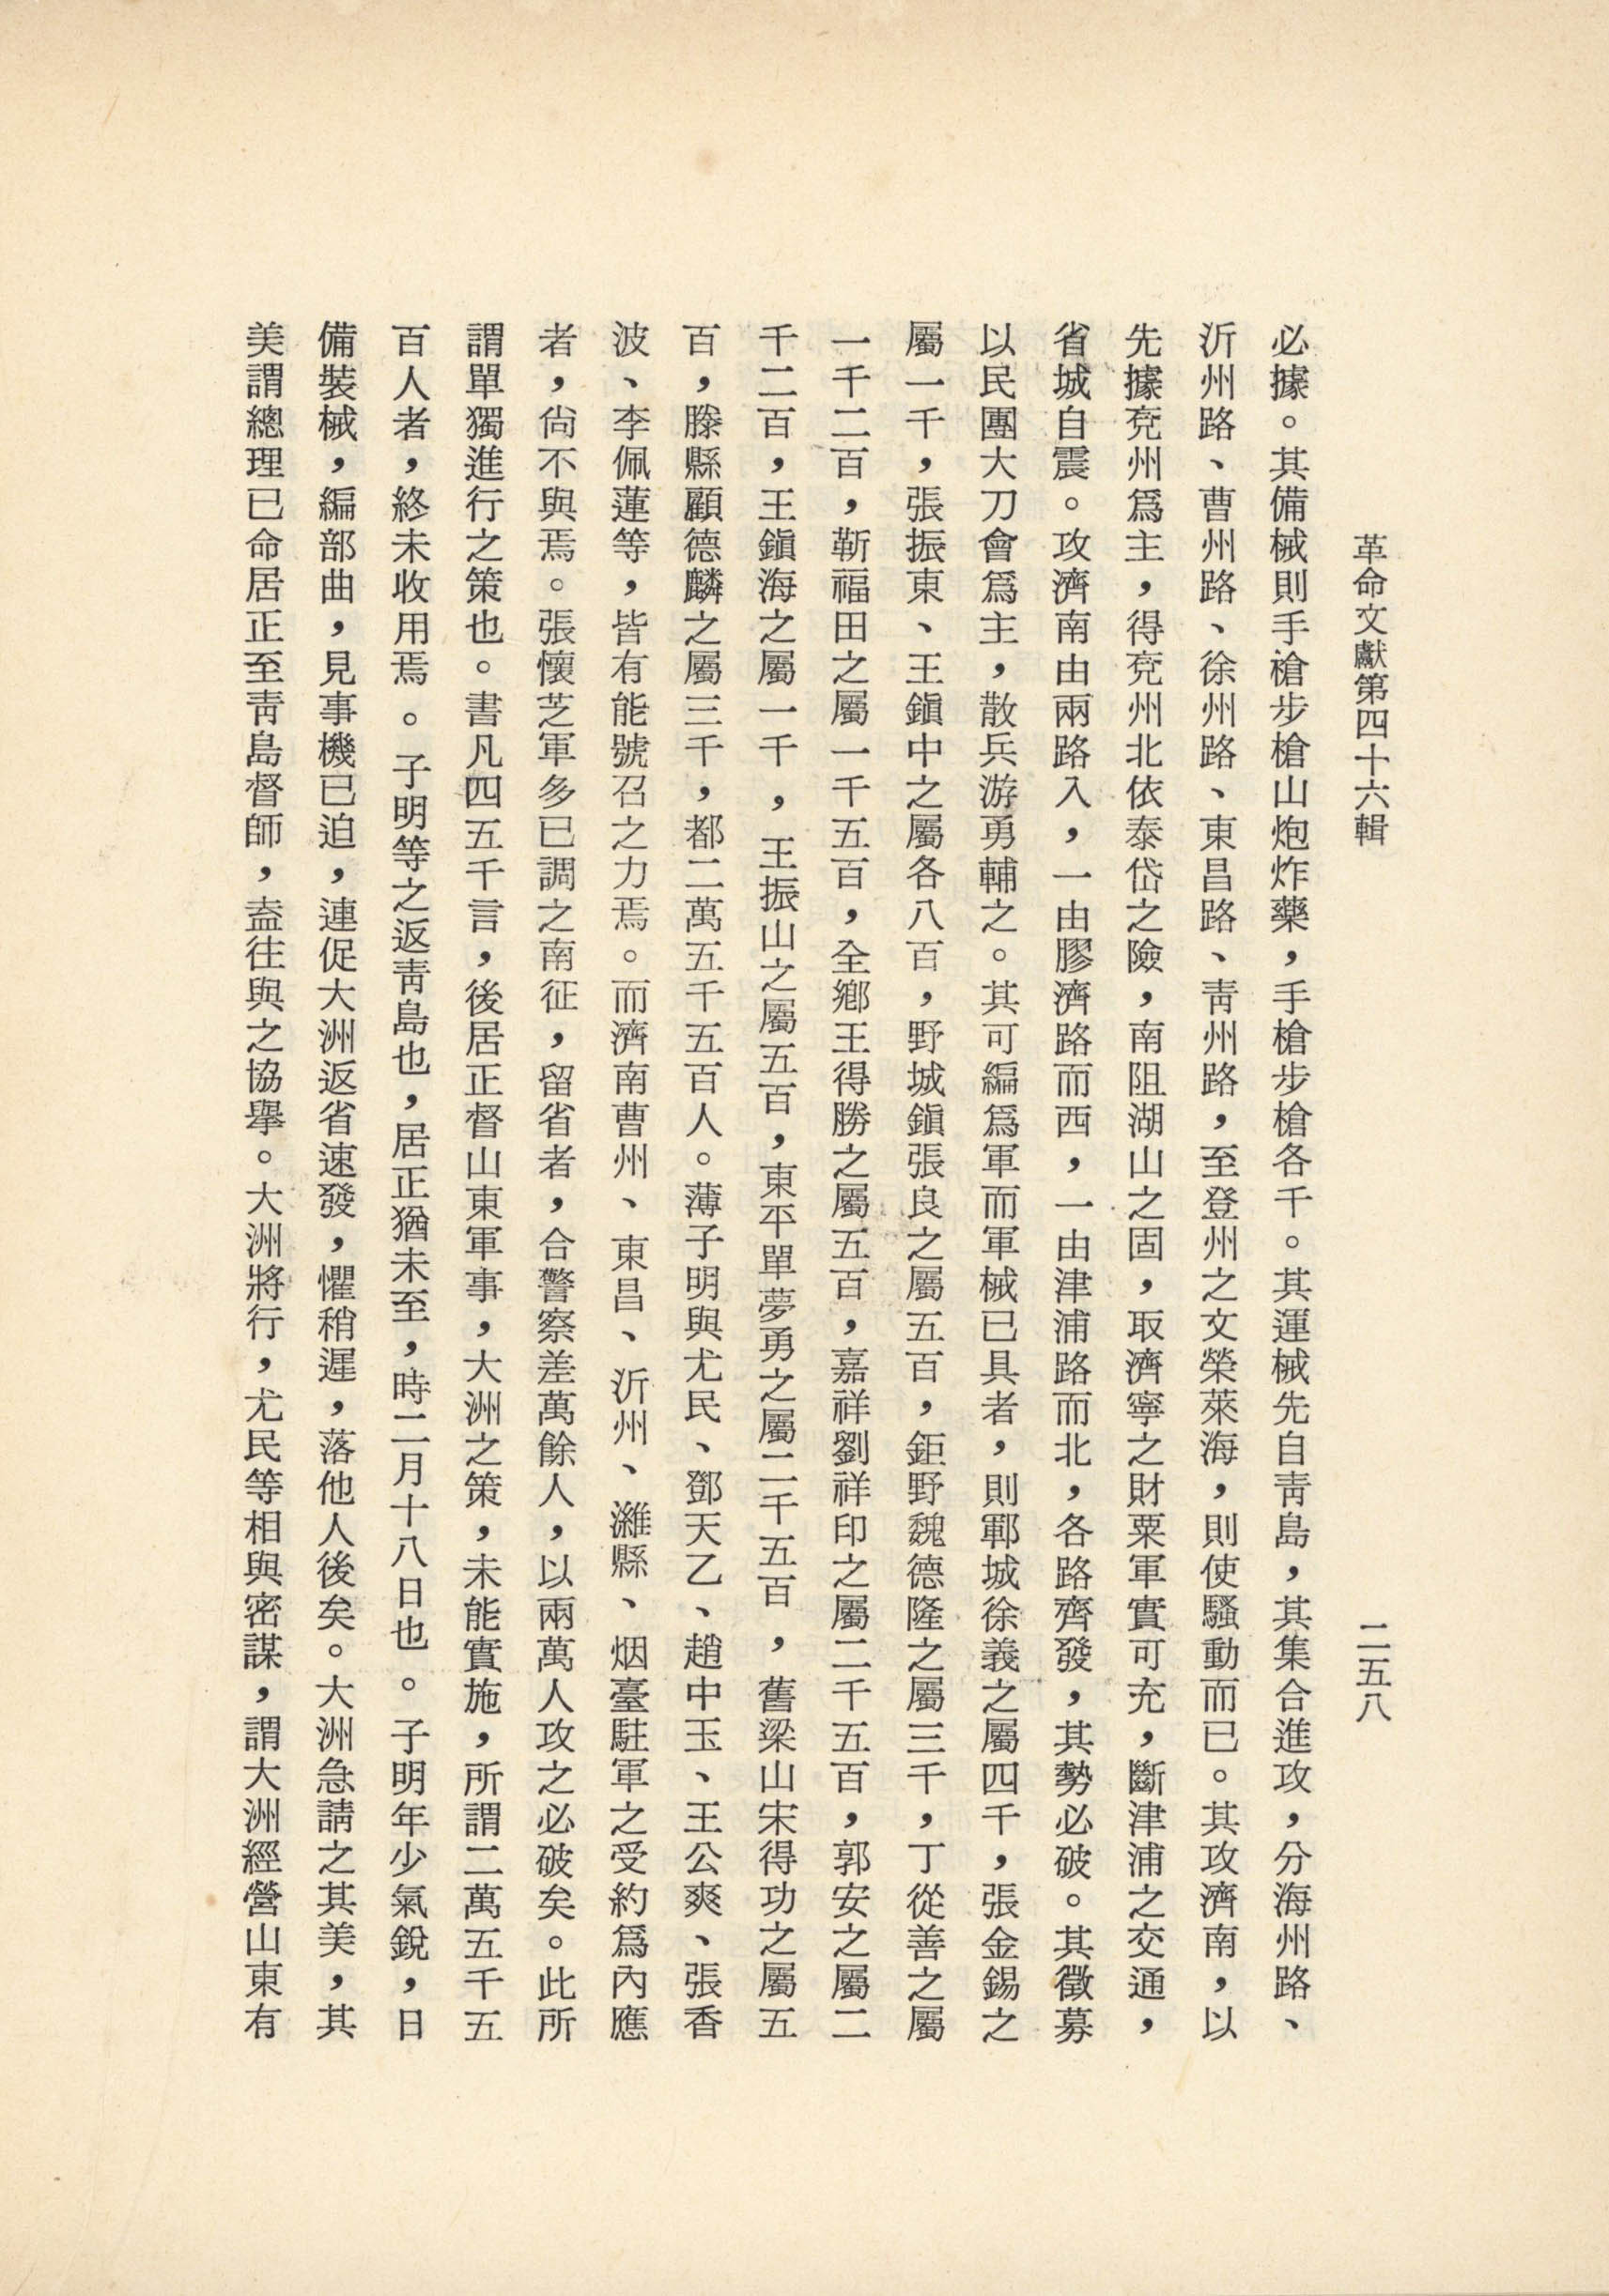 革命文獻第四十六輯
二五八
必據。其備械則手槍步槍山炮炸藥，手槍步槍各千。其運械先自靑島，其集合進攻，分海州路、
沂州路、曹州路、徐州路、東昌路、靑州路，至登州之文榮萊海，則使騷動而已。其攻濟南，以
先據兗州爲主，得兗州北依泰岱之險，南阻湖山之固，取濟寧之財粟軍實可充，斷津浦之交通，
省城自震。攻濟南由兩路入，一由膠濟路而西，一由津浦路而北，各路齊發，其勢必破。其徵募
以民團大刀會爲主，散兵游勇輔之。其可編爲軍而軍械已具者，則鄆城徐義之屬四千，張金錫之
屬一千，張振東、王鎭中之屬各八百，野城鎭張良之屬五百，鉅野魏德隆之屬三千，丁從善之屬
一千二百，靳福田之屬一千五百，全鄉王得勝之屬五百，嘉祥劉祥印之屬二千五百，郭安之屬二
千二百，王鎭海之屬一千，王振山之屬五百，東平單夢勇之屬二千五百，舊梁山宋得功之屬五
百，滕縣顧德麟之屬三千，都二萬五千五百人。薄子明與尤民、鄧天乙、趙中玉、王公爽、張香
波、李佩蓮等，皆有能號召之力焉。而濟南曹州、東昌、沂州、濰縣、烟臺駐軍之受約爲內應
者，尙不與焉。張懷芝軍多已調之南征，留省者，合警察差萬餘人，以兩萬人攻之必破矣。此所
謂單獨進行之策也。書凡四五千言，後居正督山東軍事，大洲之策，未能實施，所謂二萬五千五
百人者，終未收用焉。子明等之返靑島也，居正猶未至，時二月十八日也。子明年少氣銳，日
備裝械，編部曲，見事機已迫，連促大洲返省速發，懼稍遲，落他人後矣。大洲急請之其美，其
美謂總理已命居正至靑島督師，盍往與之協擧。大洲將行，尤民等相與密謀，謂大洲經營山東有